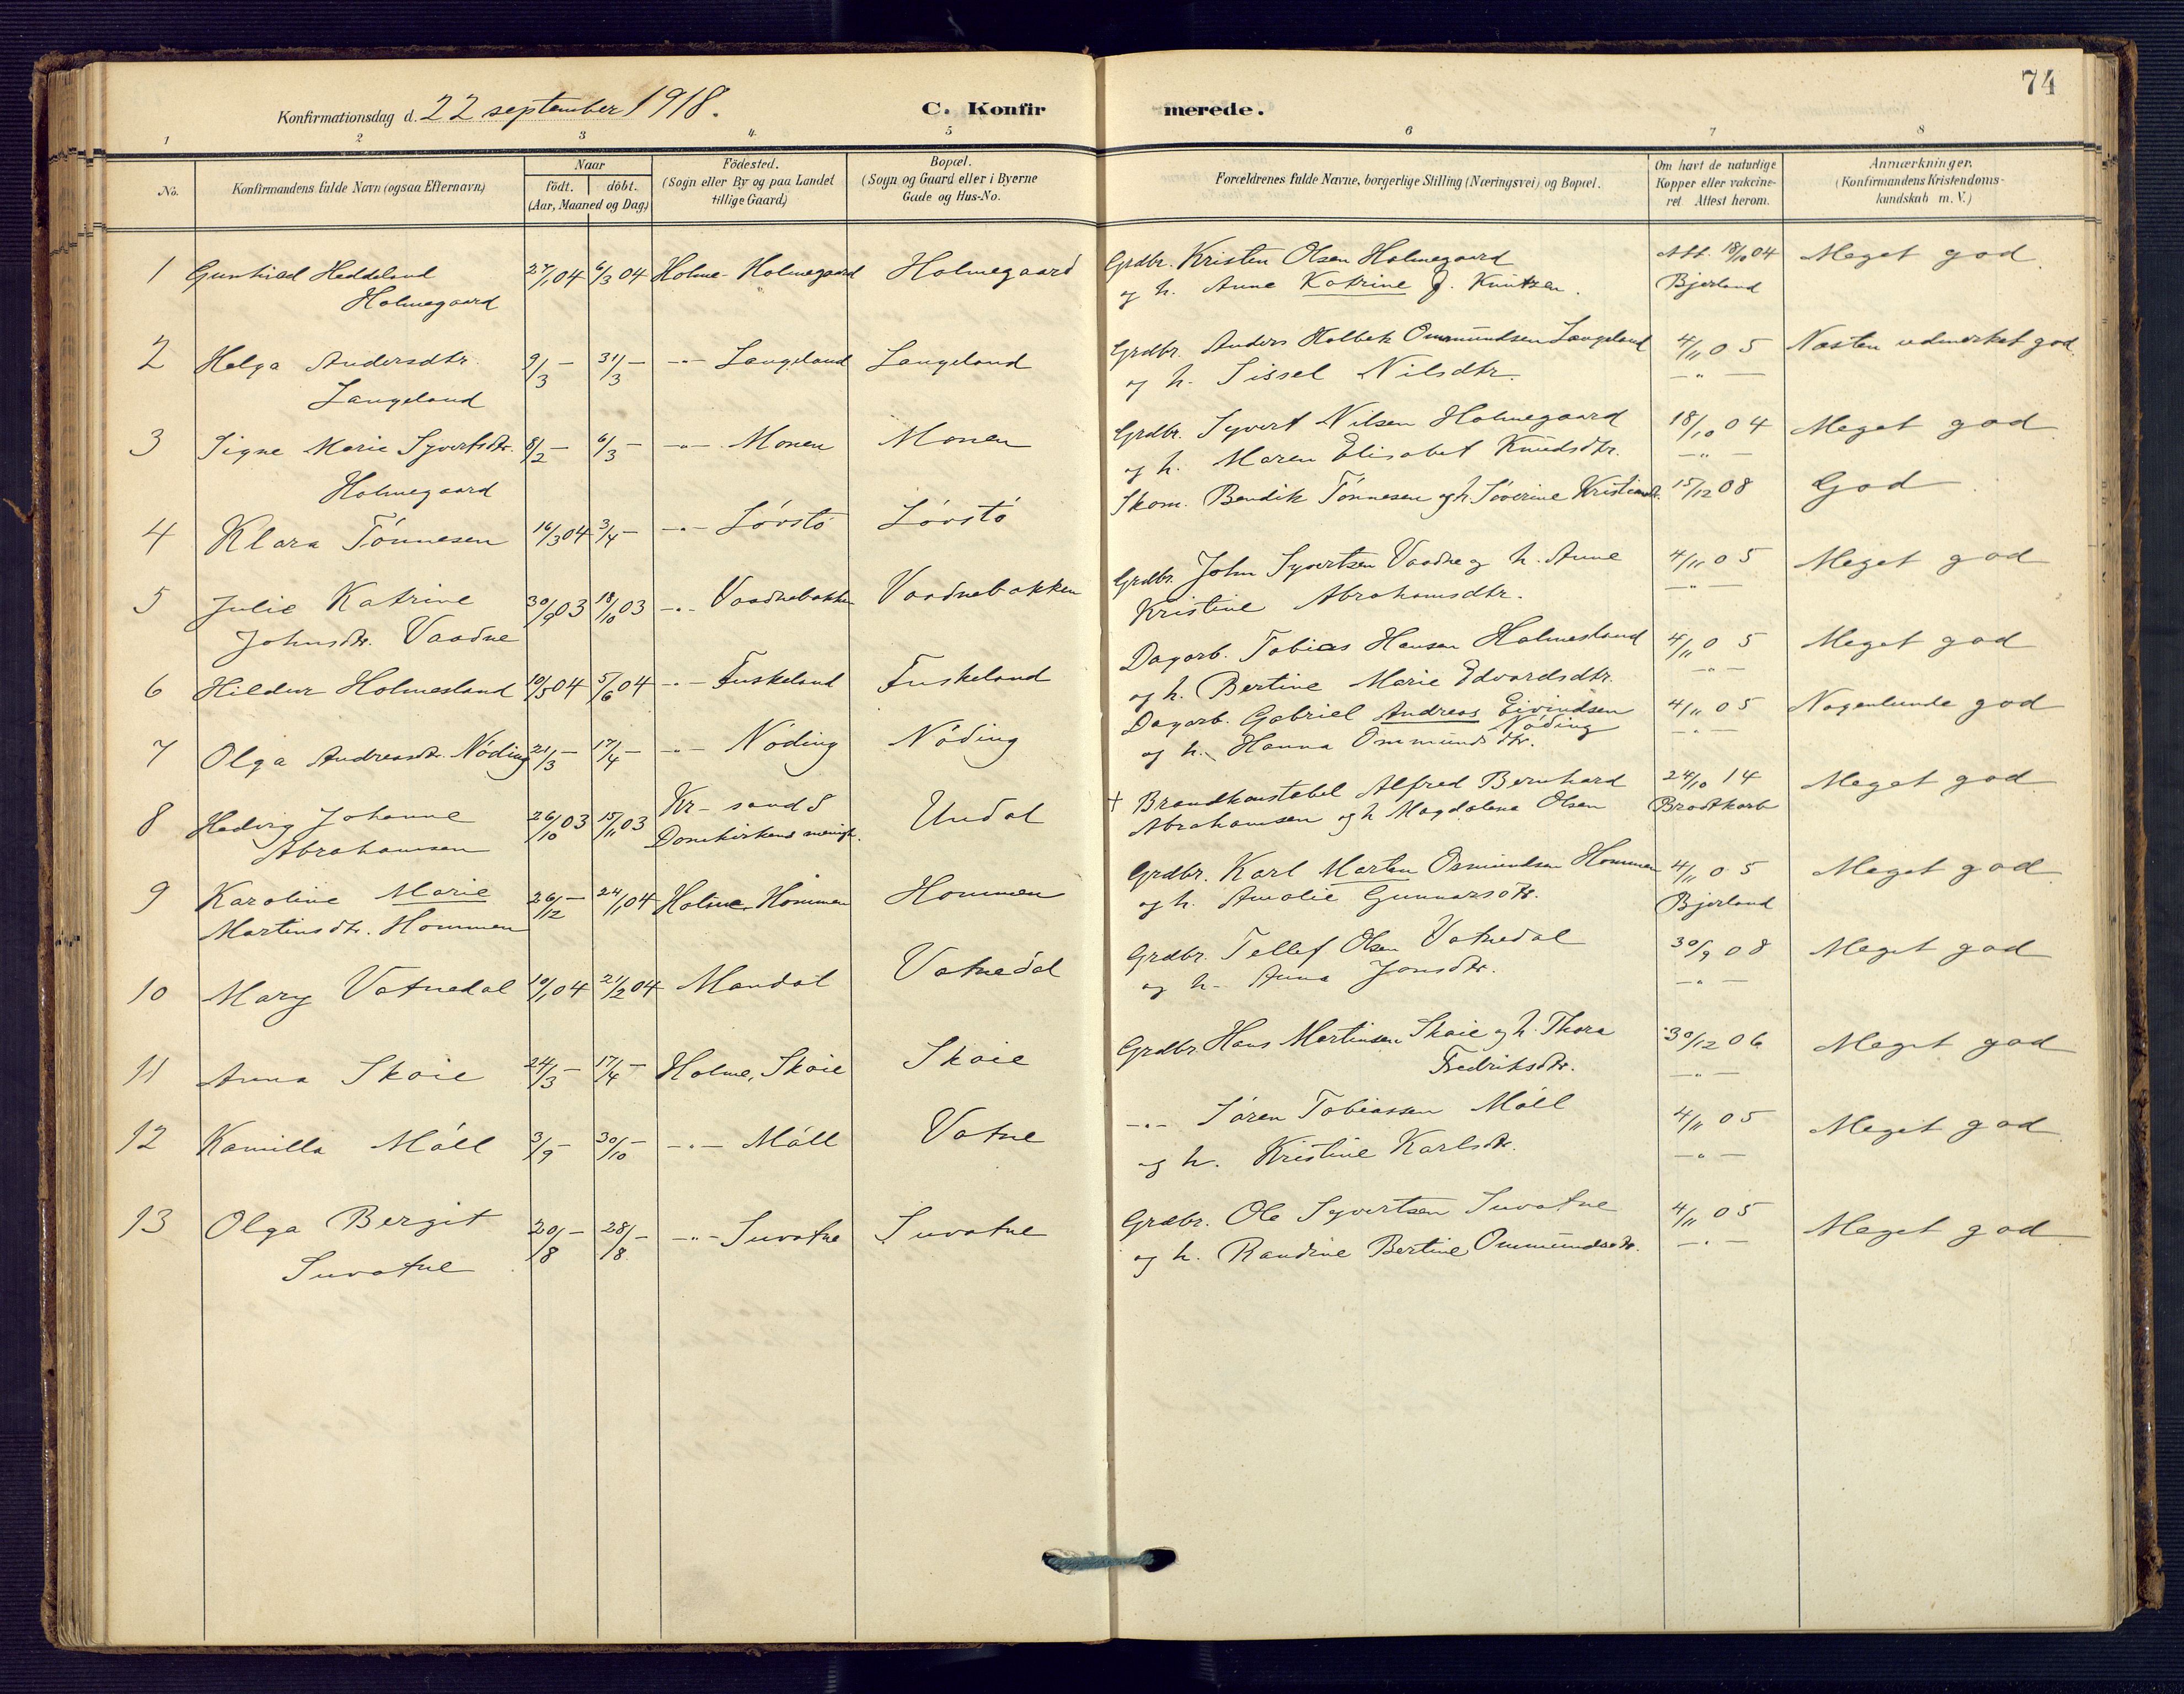 74
Konfirmationsdag d. 22 september 1918.
C. Konfirmerede.
1 2 3 4 5 6 7 8
No.
Konfirmandens fulde Navn (ogsaa Efternavn)
Naar
födt. döbt.
(Aar, Maaned og Dag)
Födested.
(Sogn eller By og paa Landet
tillige Gaard)
Bopæl.
(Sogn og Gaard eller i Byerne
Gade og Hus-No.
Forældrenes fulde Navne, borgerlige Stilling (Næringsvei) og Bopæl.
Om havt de naturlige
Kopper eller vakcine-
ret Attest herom.
Anmærkninger.
(Konfirmandens Kristendoms-
kundskab m. V.)
1 Gunhild Heddeland 27/1 04 6/3 04 Holme - Holmegaard Holmegaard Grdbr. Kristen Olsen Holmegaard Att. 18/10 04 Meget god
Holmegaard og h. Anne Katrine J. Knutzen. Bjerland
2 Helga Andersdtr. 9/3 — 31/3 — -"- Langeland Langeland Grdbr. Anders Holbek Ommundsen Langeland 4/11 05 Næsten udmerket god.
Langeland og h. Sissel Nilsdtr. — " —
3 Signe Marie Syvertsdtr. 8/2 — 6/3 — -"- Monen Monen Grdbr. Syvert Nilsen Holmegaard 18/10 04 Meget god
Holmegaard og h. Maren Elisabet Knudsdtr. — " —
4 Klara Tönnesen 16/3 04 3/4 — -"- Lövstö Lövstö Skom. Bendik Tönnesen og h. Söverine Kristiansdtr. 15/12 08 God
5 Julie Katrine 30/9 03 18/10 03 -"- Vaadnebakken Vaadnebakken Grdbr. John Syvertsen Vaadne og h. Anne 4/11 05 Meget god
Johnsdtr. Vaadne Kristine Abrahamsdtr. — " —
6 Hildur Holmesland 10/5 04 5/6 04 -"- Fuskeland Fuskeland Dagarb. Tobias Hansen Holmesland 4/11 05 Meget god
og h. Bertine Marie Edvardsdtr. — " —
7 Olga Andreasdtr. Nöding 21/3 — 17/4 — -"- Nöding Nöding Dagarb. Gabriel Andreas Eivindsen 4/11 05 Nogenlunde god
Nöding
og h. Hanna Ommundsdtr. — " —
8 Hedvig Johanne 26/10 03 15/11 03 Kr-sand S Undal † Brandkonstabel Alfred Bernhard 24/10 14 Meget god
Abrahamsen Domkirkens menigh. Abrahamsen og h. Magdalena Olsen Brodtkorb
9 Karoline Marie 26/12 — 24/1 04 Holme, Hommen Hommen Grdbr. Karl Marten Osmundsen Hommen 4/11 05 Meget god
Martinsdtr. Hommen og h. Amalie Gunnarsdtr. Bjerland
10 Mary Vatnedal 10/1 04 21/2 04 Mandal Vatnedal Grdbr. Tellef Olsen Vatnedal 30/9 08 Meget god
og h. Anna Jonsdtr. — " —
11 Anna Skoie 24/3 — 17/4 — Holme, Skoie Skoie Grdbr. Hans Martinsen Skoie og h. Thora 30/12 06 Meget god
Fredriksdtr. — " —
12 Kamilla Möll 3/9 — 30/10 — -"- Möll Vatne -"- Sören Tobiassen Möll 4/11 05 Meget god
og h. Kristine Karlsdtr. — " —
13 Olga Bergit 20/8 — 28/8 — -"- Suvatne Suvatne Grdbr. Ole Syvertsen Suvatne 4/11 05 Meget god
Suvatne og h. Randine Bertine Ommundsdtr. — " —